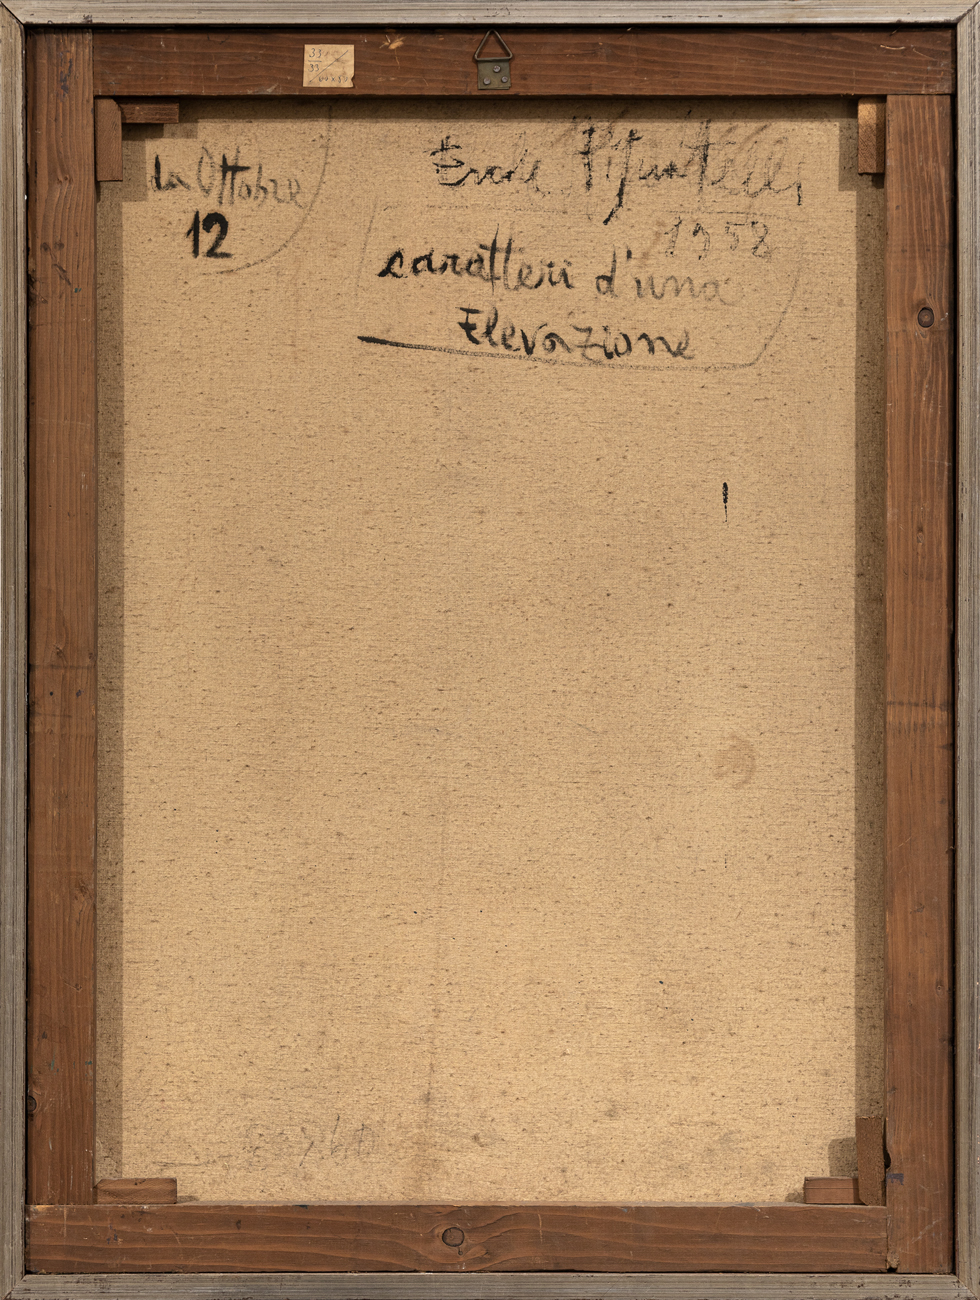 la Ottobre
12
Ercole Pignatelli
1958
caratteri d'una
Elevazione